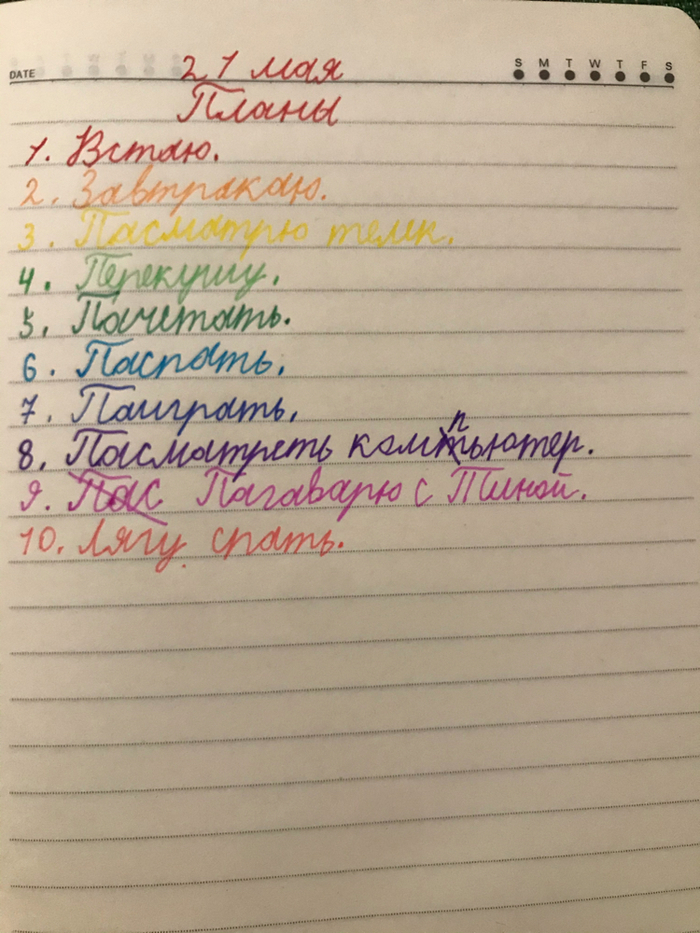 DATE 21 мая S M T W T F S
Планы
1. Встаю.
2. Завтракаю.
3. Пасматрю телек.
4. Перекушу.
5. Пачетать.
6. Паспать.
7. Паиграть.
8. Пасматреть компьютер.
9. Пас Пагаварю с Тиной.
10. Лягу спать.